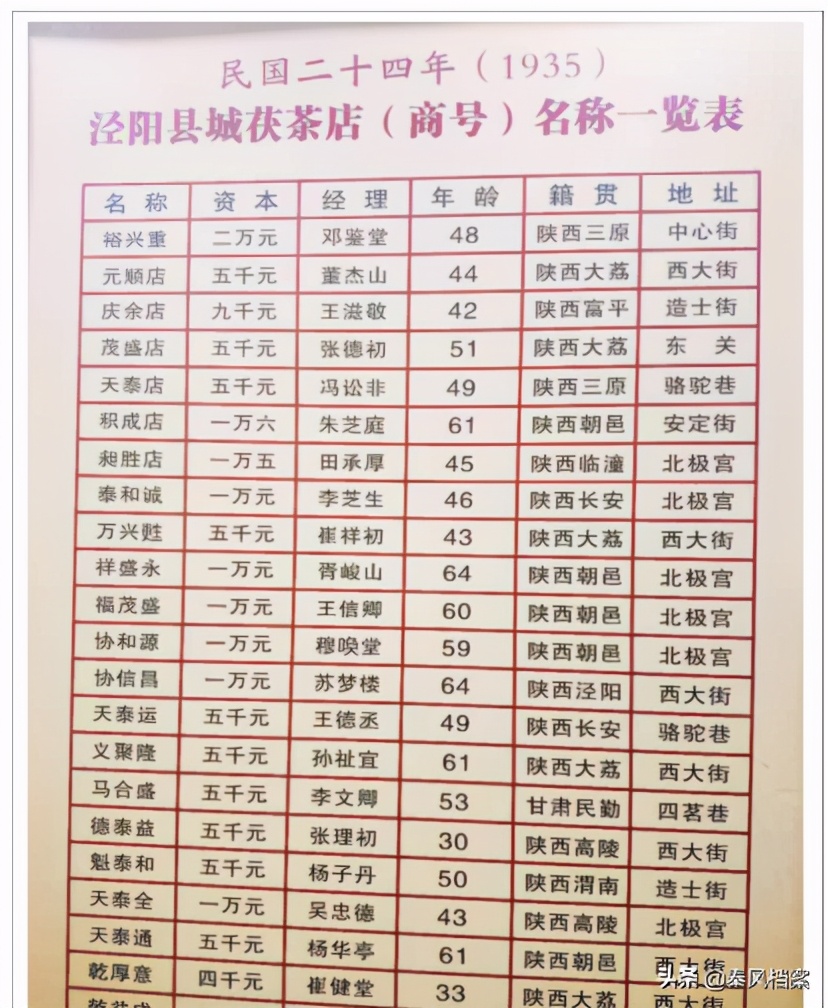 民国二十四年（1935）
泾阳县城茯茶店（商号）名称一览表
名称 资本 经理 年龄 籍贯 地址
裕兴重 二万元 邓鉴堂 48 陕西三原 中心街
元顺店 五千元 董杰山 44 陕西大荔 西大街
庆余店 九千元 王滋敬 42 陕西富平 造士街
茂盛店 五千元 张德初 51 陕西大荔 东关
天泰店 五千元 冯讼非 49 陕西三原 骆驼巷
积成店 一万六 朱芝庭 61 陕西朝邑 安定街
昶胜店 一万五 田承厚 45 陕西临潼 北极宫
泰和诚 一万元 李芝生 46 陕西长安 北极宫
万兴甡 五千元 崔祥初 43 陕西大荔 西大街
祥盛永 一万元 胥峻山 64 陕西朝邑 北极宫
福茂盛 一万元 王信卿 60 陕西朝邑 北极宫
协和源 一万元 穆唤堂 59 陕西朝邑 北极宫
协信昌 一万元 苏梦楼 64 陕西泾阳 西大街
天泰运 五千元 王德丞 49 陕西长安 骆驼巷
义聚隆 五千元 孙祉宜 61 陕西大荔 西大街
马合盛 五千元 李文卿 53 甘肃民勤 四茗巷
德泰益 五千元 张理初 30 陕西高陵 西大街
魁泰和 五千元 杨子丹 50 陕西渭南 造士街
天泰全 一万元 吴忠德 43 陕西高陵 北极宫
天泰通 五千元 杨华亭 61 陕西朝邑 西大街
乾厚意 四千元 崔健堂 33 陕西大荔 西大街
头条 @秦风档案